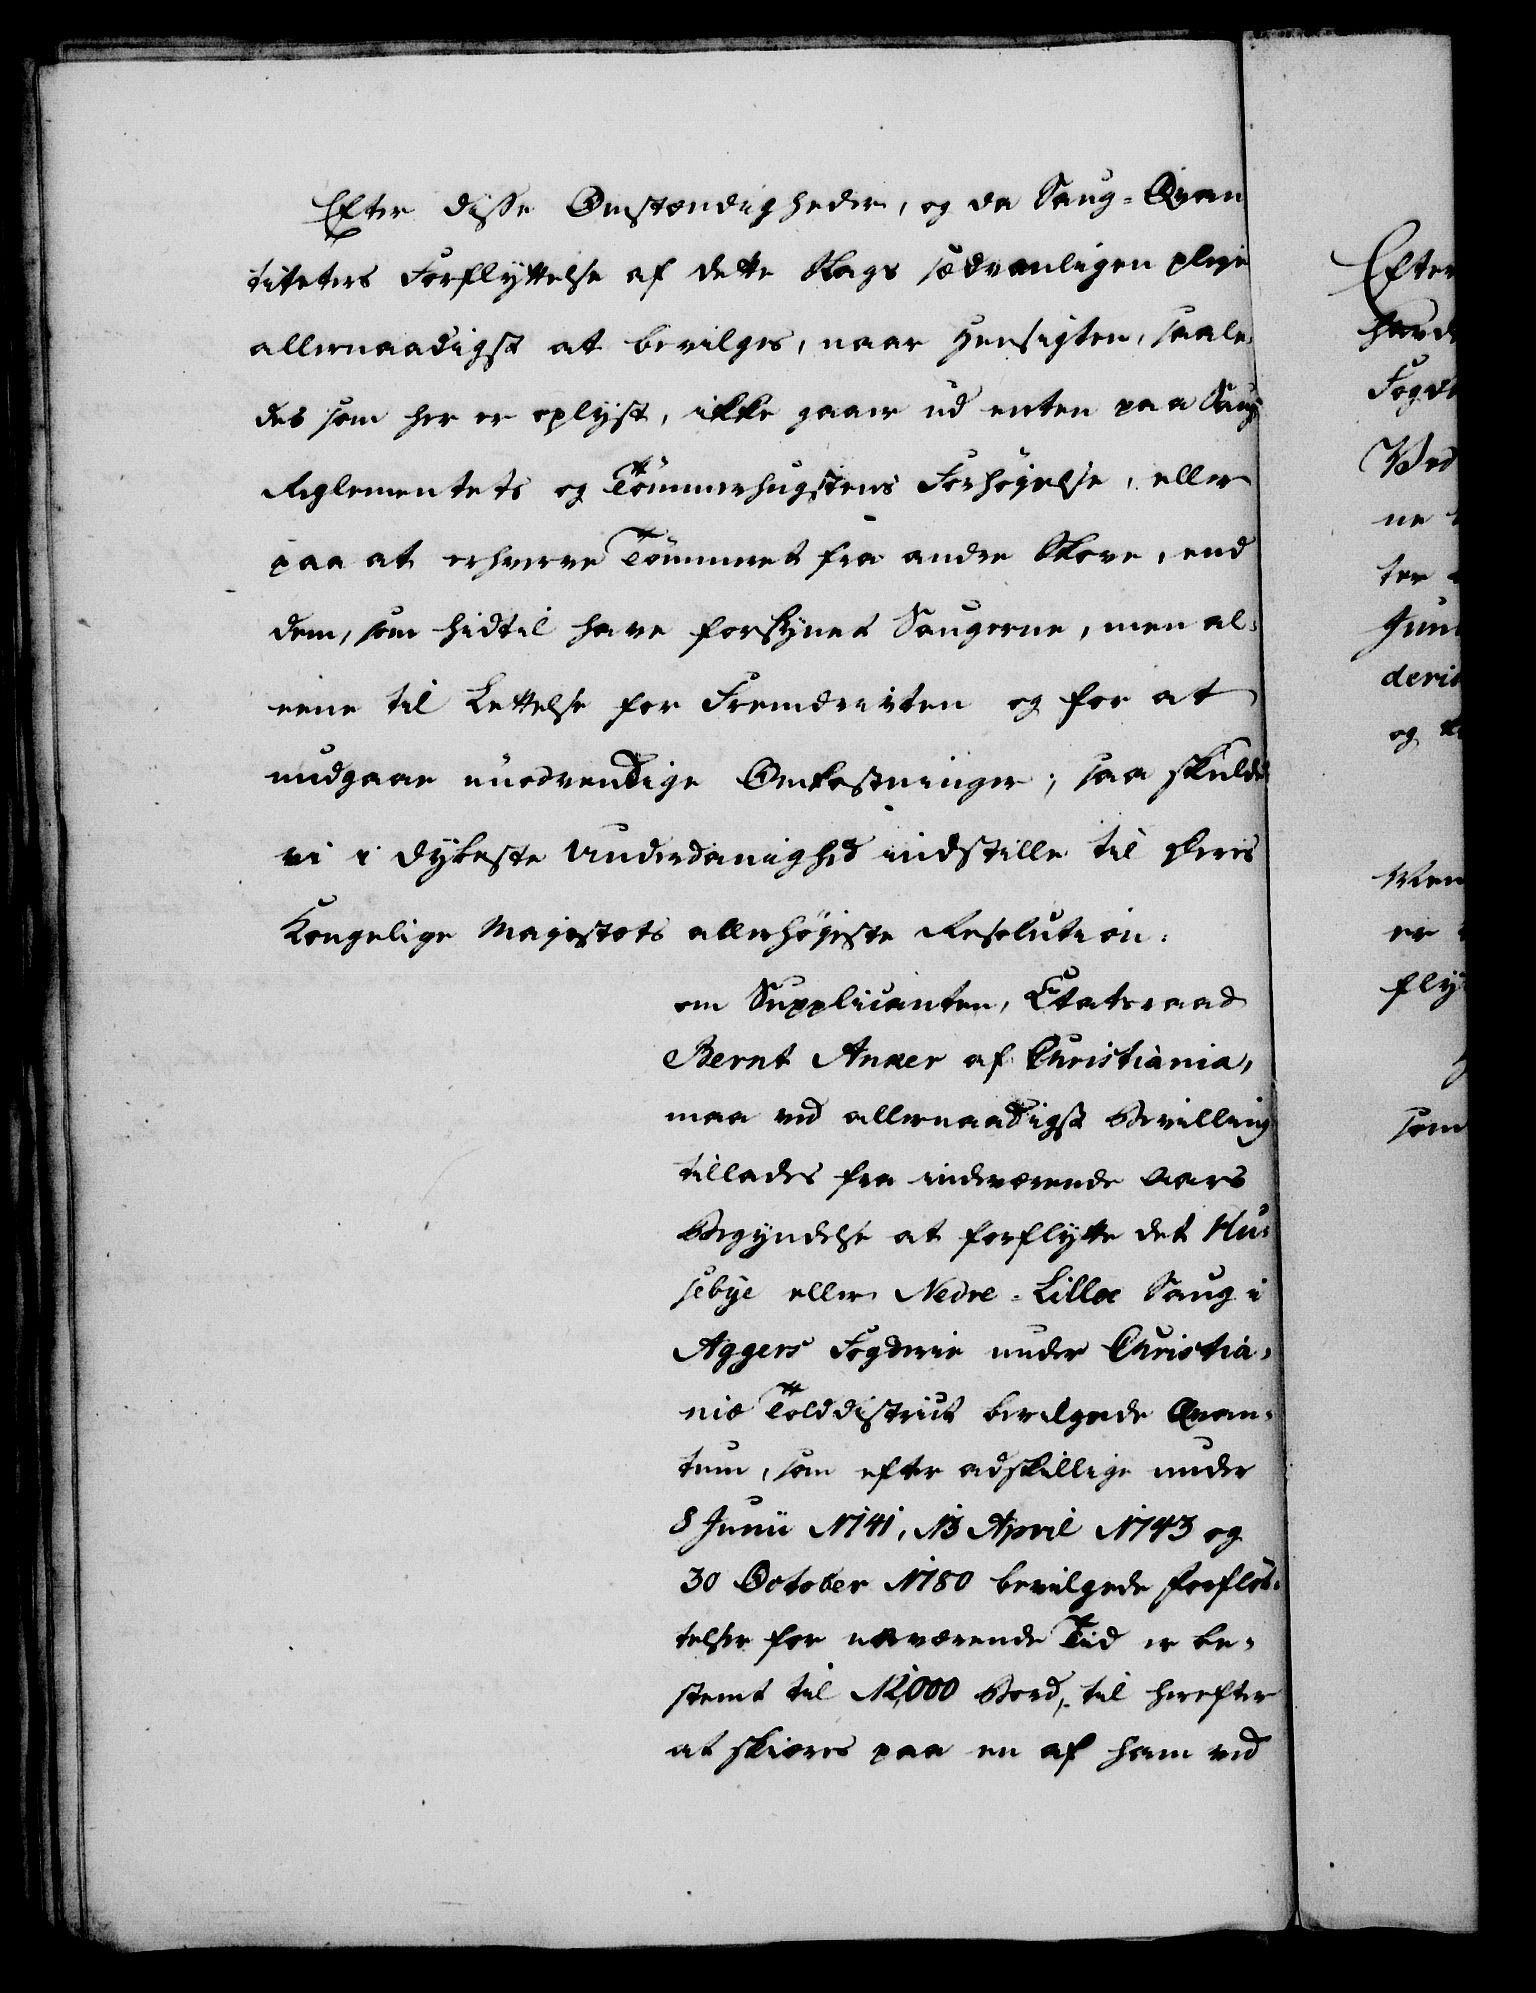 Efter disse Omstændigheder, og da Saug-Qvan
titeters Forflyttelse af dette Slags sædvanligen pleje
allernaadigst at bevilges, naar Hensigten, saale-
des som her er oplyst, ikke gaaer ud enten paa Saug
Reglementets og Tømmerhugstens Forhøjelse, eller
paa at erhverve Tømmeret fra andre Skove, end
dem, som hidtil have forsynet Saugerne, men al-
eene til Lettelse for Fremdriften og for at
undgaae unødvendige Omkostninger; saa skulde
vi i dybeste Underdanighed indstille til Deres
Kongelige Majestæts allerhøjeste Resolution:
om Supplicanten, Etatsraad
Bernt Anker af Christiania,
maa ved allernaadigst Bevilling
tillades fra indeværende Aars
Begyndelse at forflytte det Hu-
sebye eller Nedre-Lilloe Saug i
Aggers Fogderie under Christia-
niæ Tolddistrict bevilgede Qvan-
tum, som efter adskillige under
8 Junii 1741, 13 April 1743 og
30 October 1780 bevilgede Forflyt-
telser for nærværende Tid er be-
stemt til 12,000 Bord, til herefter
at skiæres paa en af ham ved
Efter
Fogde
Wed
ne
ter
Juni
deri
og
er
fly
som